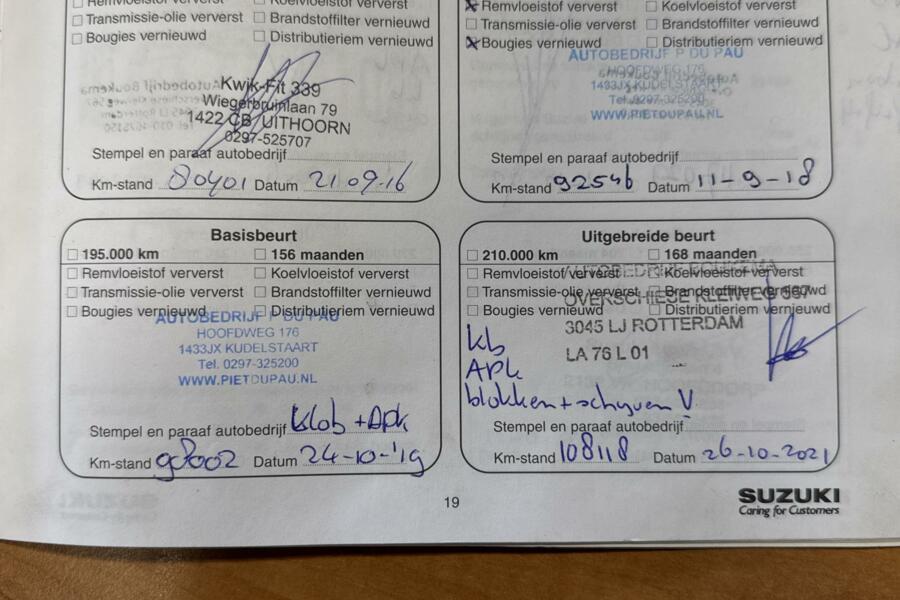 Remvloeistof ververst Koelvloeistof ververst
Transmissie-olie ververst Brandstoffilter vernieuwd
Bougies vernieuwd Distributieriem vernieuwd
Kwik-Fit 339
Wiegerbruinlaan 79
1422 CB UITHOORN
0297-525707
Stempel en paraaf autobedrijf
Km-stand 80401 Datum 21 09-16
Remvloeistof ververst Koelvloeistof ververst
Transmissie-olie ververst Brandstoffilter vernieuwd
Bougies vernieuwd Distributieriem vernieuwd
AUTOBEDRIJF P DU PAU
HOOFDWEG 176
1433JX KUDELSTAART
Tel. 0297-325200
WWW.PIETDUPAU.NL
Stempel en paraaf autobedrijf
Km-stand 92546 Datum 11-9-18
Basisbeurt
195.000 km 156 maanden
Remvloeistof ververst Koelvloeistof ververst
Transmissie-olie ververst Brandstoffilter vernieuwd
Bougies vernieuwd Distributieriem vernieuwd
AUTOBEDRIJF P DU PAU
HOOFDWEG 176
1433JX KUDELSTAART
Tel. 0297-325200
WWW.PIETDUPAU.NL
Stempel en paraaf autobedrijf klob + Apk
Km-stand 98002 Datum 24-10-'19
Uitgebreide beurt
210.000 km 168 maanden
Remvloeistof ververst Koelvloeistof ververst
Transmissie-olie ververst Brandstoffilter vernieuwd
Bougies vernieuwd Distributieriem vernieuwd
OVERSCHIESE KLEIWEG 567
3045 LJ ROTTERDAM
LA 76 L 01
kb
APk
blokken + schyven V
Stempel en paraaf autobedrijf
Km-stand 108118 Datum 26-10-2021
19
SUZUKI
Caring for Customers